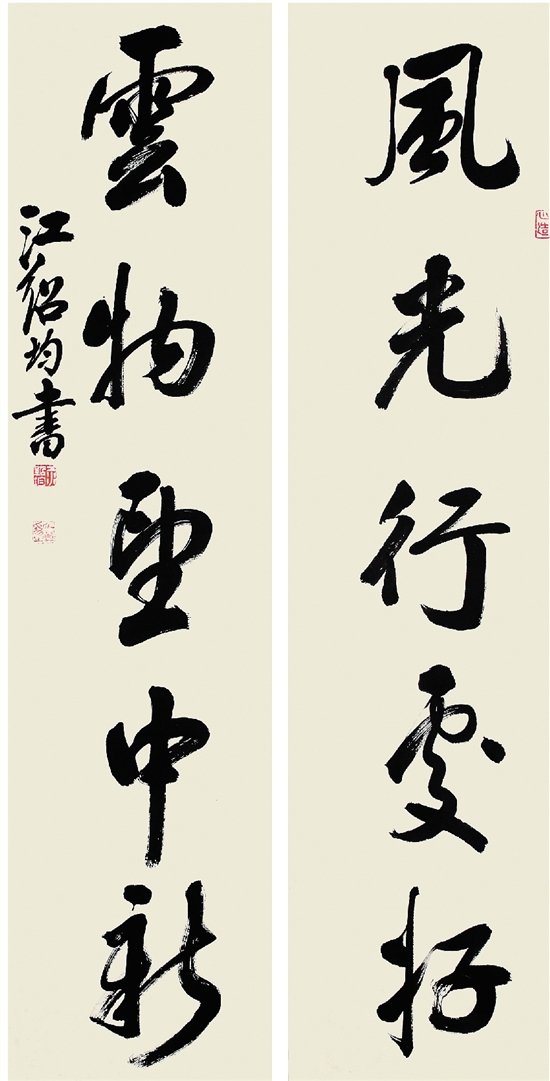 風光行處好
雲物望中新
江紹均書
心造